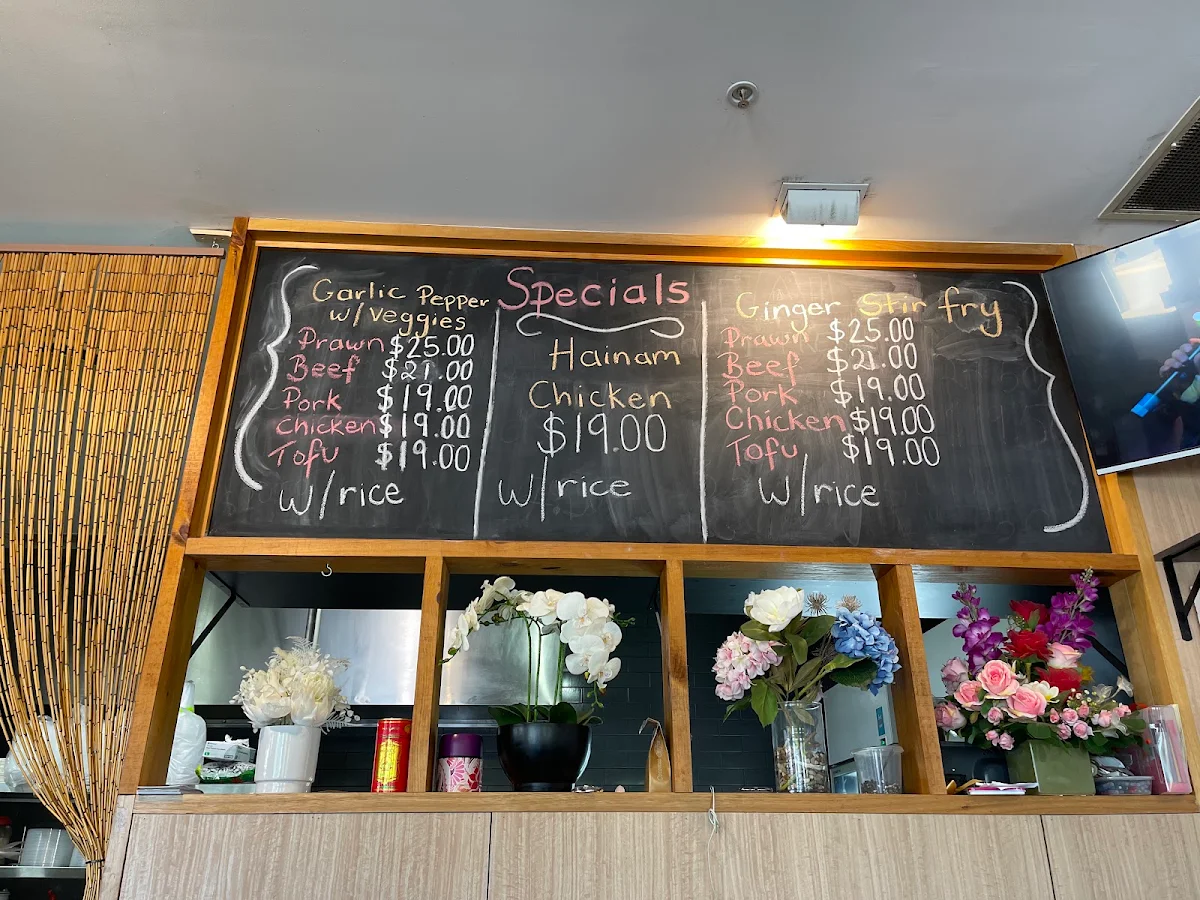 Specials
Garlic Pepper
w/veggies
Prawn $25.00
Beef $21.00
Pork $19.00
Chicken $19.00
Tofu $19.00
w/rice
Hainam
Chicken
$19.00
w/rice
Ginger Stir fry
Prawn $25.00
Beef $21.00
Pork $19.00
Chicken $19.00
Tofu $19.00
w/rice